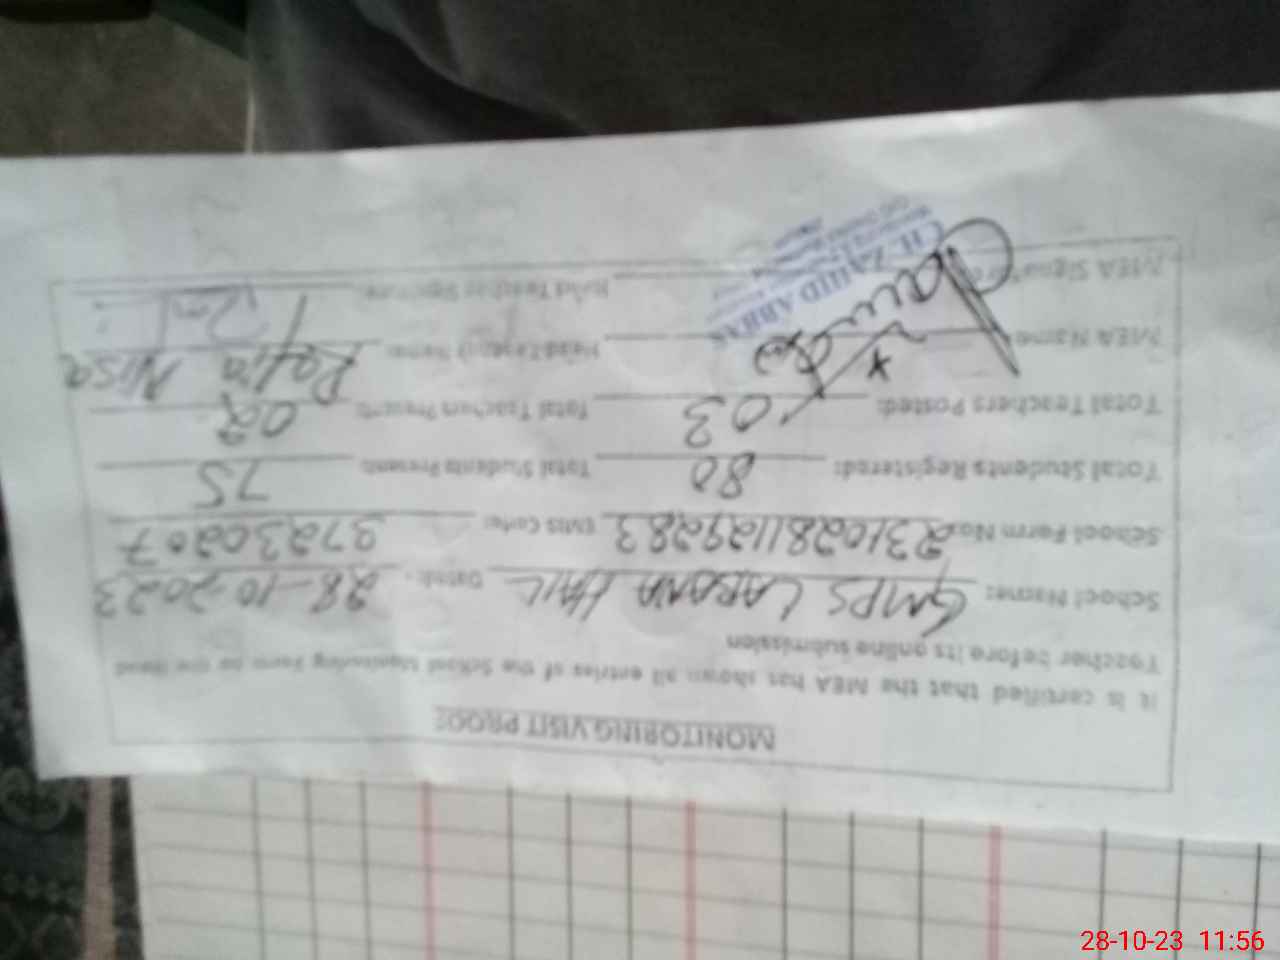 MONITORING VISIT PROOF
It is certified that the MEA has shown all entries of the School Monitoring Form to the Head
Teacher before its online submission
School Name: GMPS LABANA HAIL Dated: 28-10-2023
School Form No: 2310281129283 EMIS Code: 37230207
Total Students Registered: 80 Total Students Present: 75
Total Teachers Posted: 03 Total Teachers Present: 02
MEA Name Head Teacher Name: Rafia Nisa
MEA Signature Head Teacher Signature:
CH. ZAHID ABBAS
28-10-23 11:56